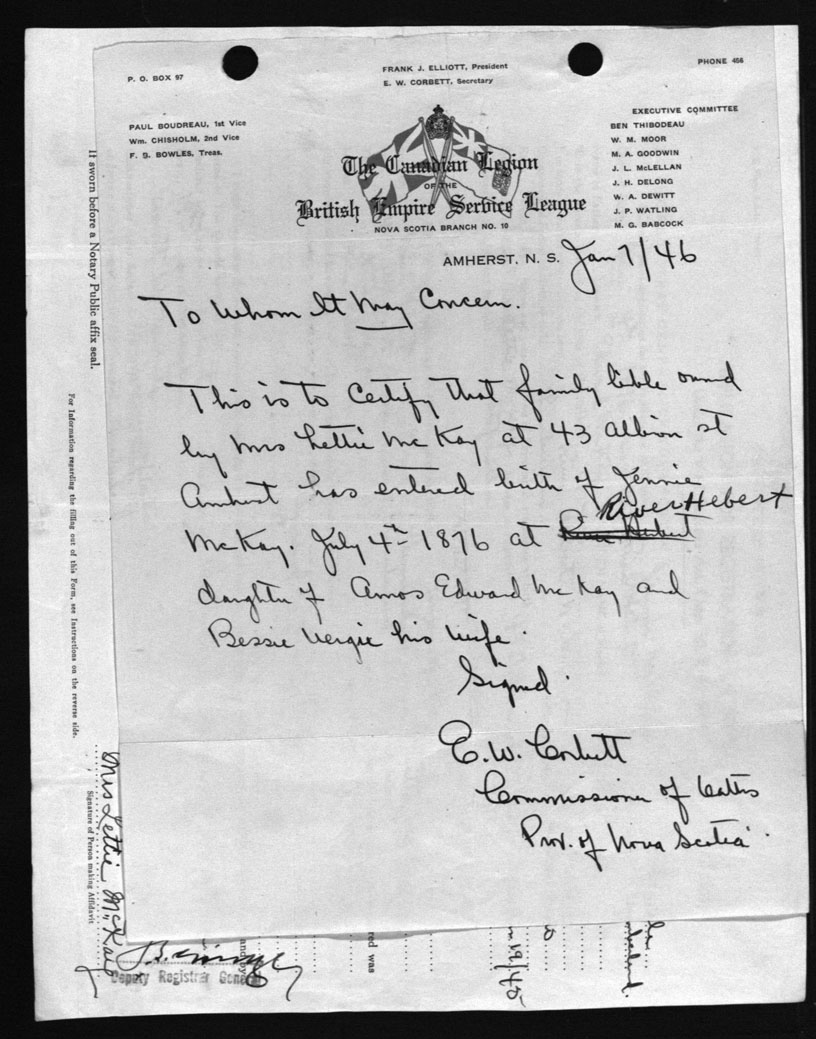 P. O. BOX 97
FRANK J. ELLIOTT, President
E. W. CORBETT, Secretary
PHONE 466
PAUL BOUDREAU, 1st Vice
Wm. CHISHOLM, 2nd Vice
F. B. BOWLES, Treas.
EXECUTIVE COMMITTEE
BEN THIBODEAU
W. M. MOOR
M. A. GOODWIN
J. L. McLELLAN
J. H. DELONG
W. A. DEWITT
J. P. WATLING
M. G. BABCOCK
The Canadian Legion
OF THE
British Empire Service League
NOVA SCOTIA BRANCH NO. 10
AMHERST, N. S. Jan 7/46
To Whom It May Concern.
This is to Certify that family bible owned
by Mrs Lettie McKay at 43 Albion st
Amherst has entered birth of Jennie
River Hebert
McKay. July 4th 1876 at River Hebert
daughter of Amos Edward McKay and
Bessie Vergie his wife.
Signed.
E. W. Corbett
Commissioner of Oaths
Prov. of Nova Scotia.
If sworn before a Notary Public affix seal.
For Information regarding the filling out of this Form, see Instructions on the reverse side.
Signature of Person making Affidavit
Mrs Lettie McKay
Deputy Registrar General
red was
19/45